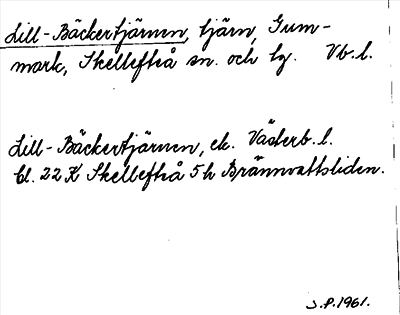 Lill-Bäckertjärnen, tjärn, Gum-
mark, Skellefteå sn. och tg. Vb. l.
Lill-Bäckertjärnen, ek. Västerb. l.
bl. 22 K Skellefteå 5 h Brännvattsliden.
S.P. 1961.